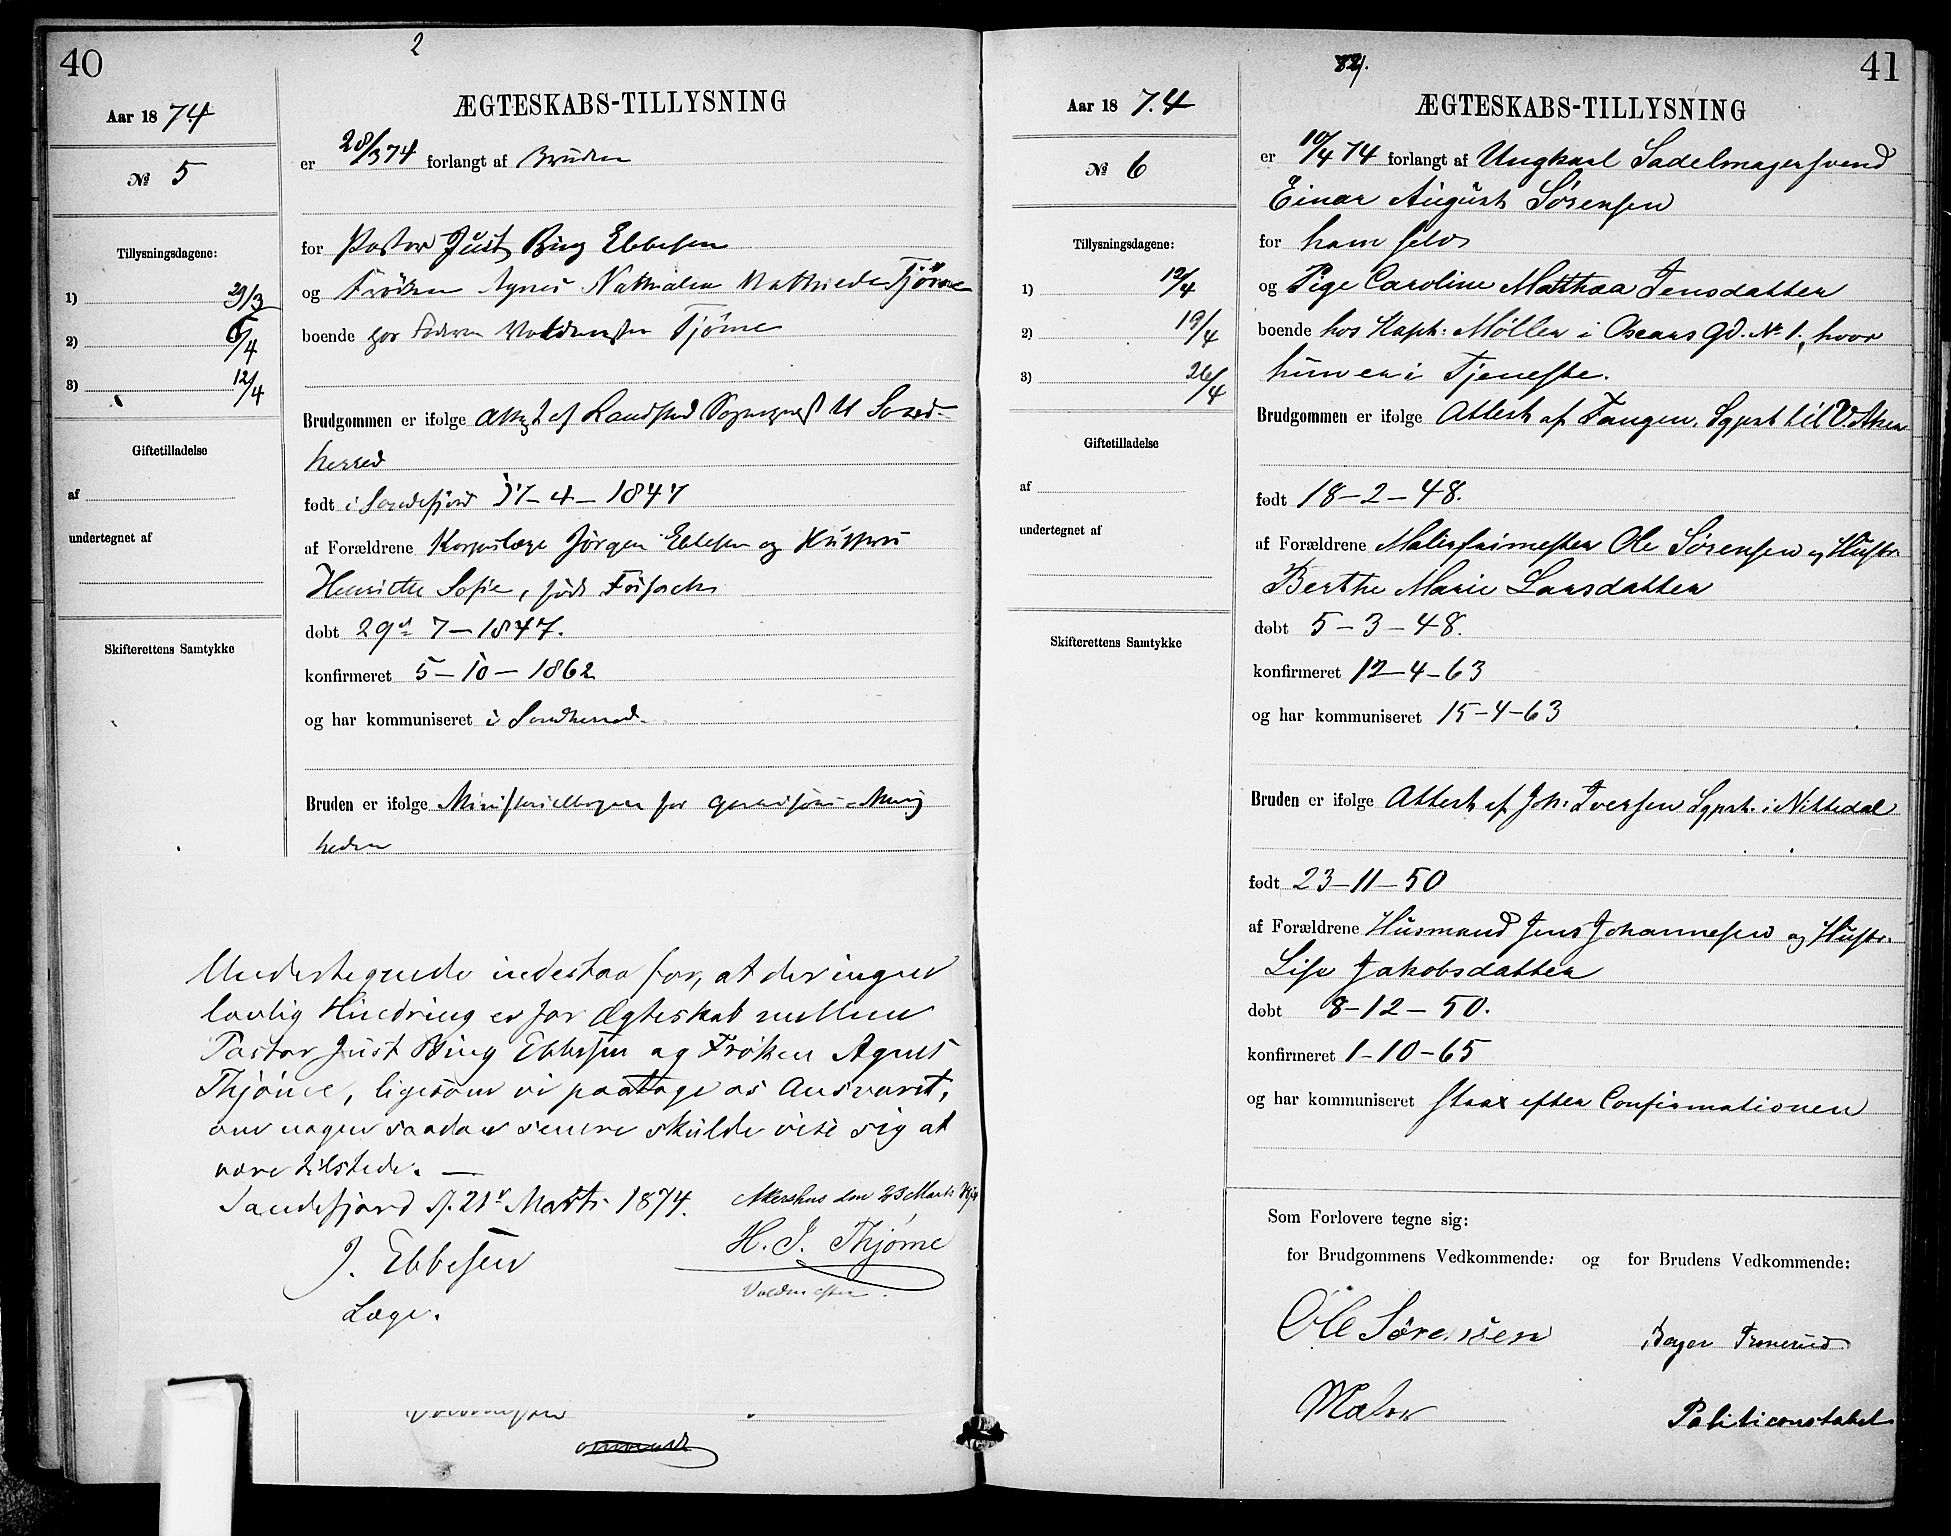 40
2
Aar 1874
ÆGTESKABS-TILLYSNING
er 28/3 74 forlangt af Bruden
№ 5
Tillysningsdagene:
for Pastor Just Bing Ebbesen
1) 29/3
og Frøken Agnes Nathalia Mathilde Tjøme
2) 5/4
boende hos Faderen Voldmester Tjøme
3) 12/4
Brudgommen er ifølge Attest af Sognepræst til
herred
Giftetilladelse
af
født i Sandefjord 17-4-1847
undertegnet af
af Forældrene Korpslæge Jørgen Ebbesen og Hustru
Henriette Sofie, født
døbt 29de 7-1847.
Skifterettens Samtykke
konfirmeret 5-10-1862
og har kommuniseret i
Bruden er ifølge Ministerialbogen for Garnisons-Menig
heden
Undertegnede indestaa for, at der ingen
lovlig Hindring er for Ægteskab mellem
Pastor Just Bing Ebbesen og Frøken Agnes
Thjöme, ligesom vi paatage os Ansvaret,
om nogen saadan senere skulde vise sig at
være tilstede. —
Sandefjord d. 21de Marts 1874.
Akershus den 23 Marts
J. Ebbesen
H. J. Thjøme
Læge.
Voldmester.
41
Aar 187.4
ÆGTESKABS-TILLYSNING
er 10/4 74 forlangt af Ungkarl Sadelmagersvend
№ 6
Einar August Sørensen
Tillysningsdagene:
for ham selv
1) 12/4
og Pige Caroline Mathea Jensdatter
2) 19/4
boende hos Kapt: Møller i Oscars Gd. № 1, hvor
3) 26/4
hun er i Tjeneste.
Brudgommen er ifølge Attest af Fangen, Sgprst til V. Aker
Giftetilladelse
af
født 18-2-48.
undertegnet af
af Forældrene Malersvimester Ole Sørensen og Hustr.
Berthe Marie Larsdatter
døbt 5-3-48.
Skifterettens Samtykke
konfirmeret 12-4-63
og har kommuniseret 15-4-63
Bruden er ifølge Attest af Joh: Iversen Sgprst. i Nittedal
født 23-11-50
af Forældrene Husmand Jens Johannesen og Hustr.
Lise Jakobsdatter
døbt 8-12-50.
konfirmeret 1-10-65
og har kommuniseret strax efter Confirmationen
Som Forlovere tegne sig:
for Brudgommens Vedkommende: og for Brudens Vedkommende:
Ole Sørensen
Maler
Politiconstabel